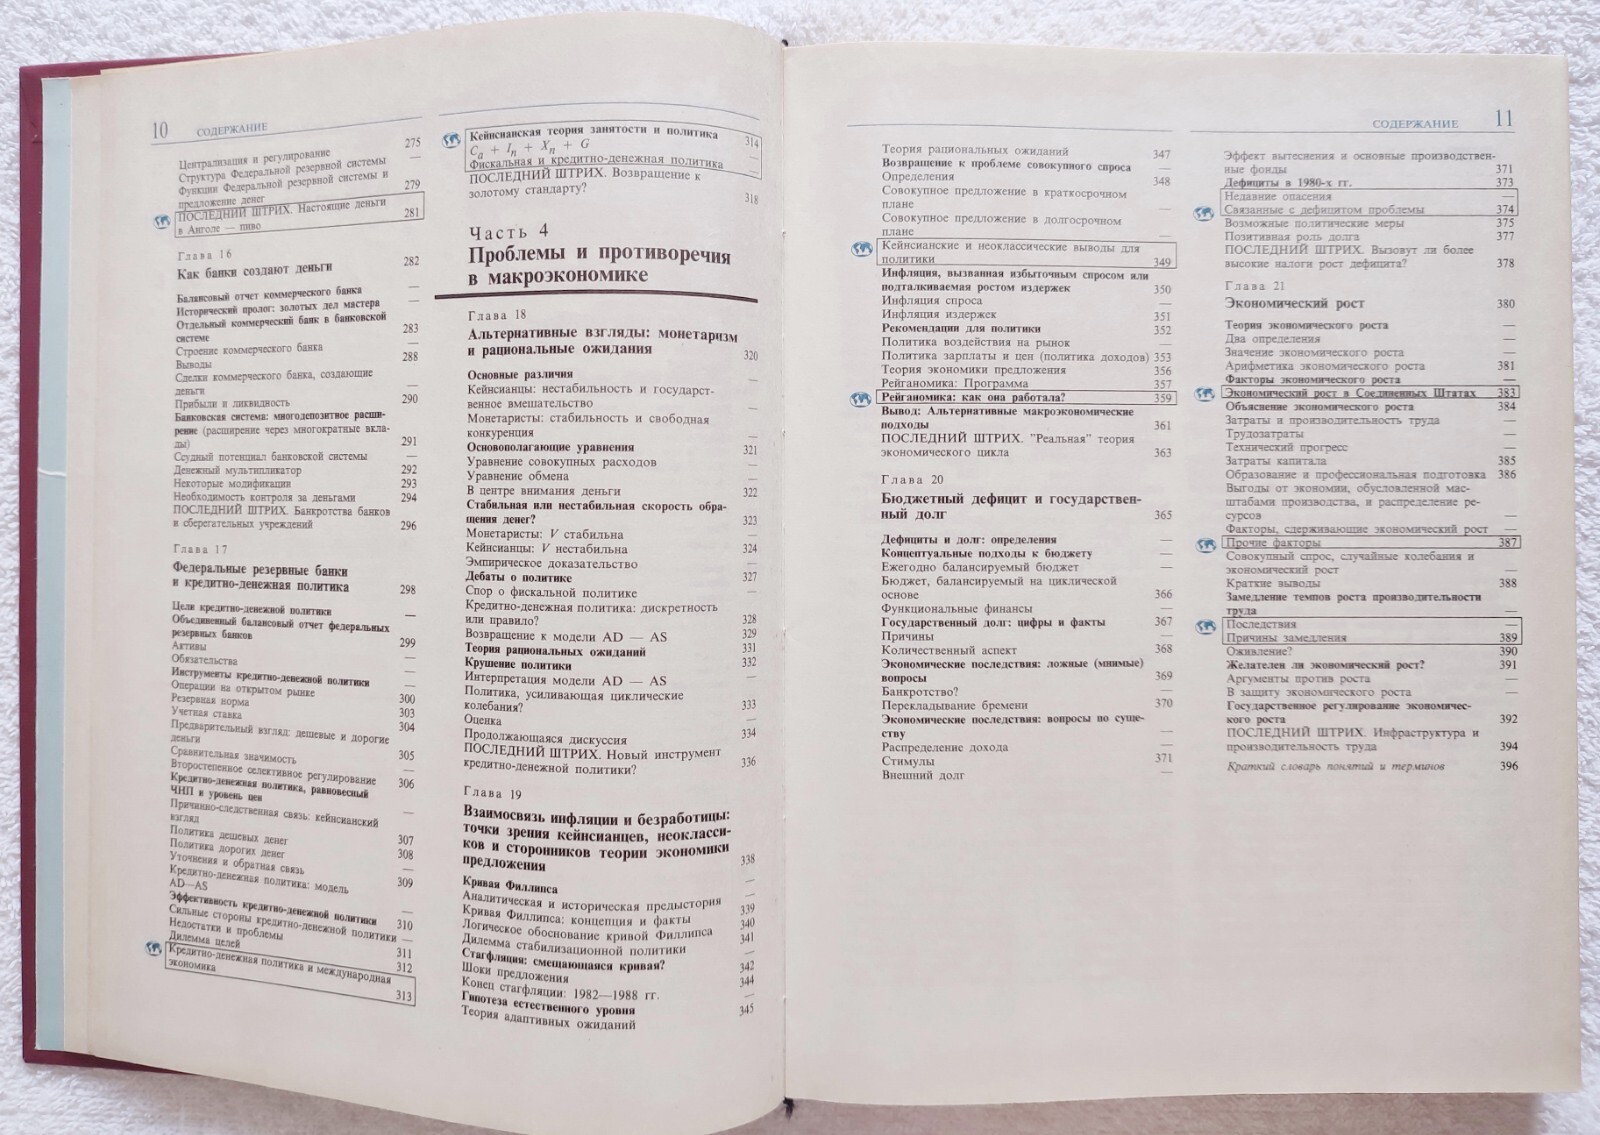 10 СОДЕРЖАНИЕ
Централизация и регулирование 275
Структура Федеральной резервной системы —
Функции Федеральной резервной системы и
предложение денег 279
ПОСЛЕДНИЙ ШТРИХ. Настоящие деньги
в Анголе — пиво 281
Глава 16
Как банки создают деньги 282
Балансовый отчет коммерческого банка —
Исторический пролог: золотых дел мастера —
Отдельный коммерческий банк в банковской
системе 283
Строение коммерческого банка —
Выводы 288
Сделки коммерческого банка, создающие
деньги —
Прибыли и ликвидность 290
Банковская система: многодепозитное расши-
рение (расширение через многократные вкла-
ды) 291
Ссудный потенциал банковской системы —
Денежный мультипликатор 292
Некоторые модификации 293
Необходимость контроля за деньгами 294
ПОСЛЕДНИЙ ШТРИХ. Банкротства банков
и сберегательных учреждений 296
Глава 17
Федеральные резервные банки
и кредитно-денежная политика 298
Цели кредитно-денежной политики —
Объединенный балансовый отчет федеральных
резервных банков —
Активы 299
Обязательства —
Инструменты кредитно-денежной политики —
Операции на открытом рынке 300
Резервная норма 303
Учетная ставка 304
Предварительный взгляд: дешевые и дорогие
деньги —
Сравнительная значимость 305
Второстепенное селективное регулирование —
Кредитно-денежная политика, равновесный 306
ЧНП и уровень цен
Причинно-следственная связь: кейнсианский
взгляд —
Политика дешевых денег 307
Политика дорогих денег 308
Уточнения и обратная связь —
Кредитно-денежная политика: модель
AD—AS 309
Эффективность кредитно-денежной политики —
Сильные стороны кредитно-денежной политики 310
Недостатки и проблемы —
Дилемма целей 311
Кредитно-денежная политика и международная 312
экономика 313
Кейнсианская теория занятости и политика
Ca + In + Xn + G 314
Фискальная и кредитно-денежная политика —
ПОСЛЕДНИЙ ШТРИХ. Возвращение к
золотому стандарту? 318
Часть 4
Проблемы и противоречия
в макроэкономике
Глава 18
Альтернативные взгляды: монетаризм
и рациональные ожидания 320
Основные различия —
Кейнсианцы: нестабильность и государст-
венное вмешательство —
Монетаристы: стабильность и свободная
конкуренция —
Основополагающие уравнения 321
Уравнение совокупных расходов —
Уравнение обмена —
В центре внимания деньги 322
Стабильная или нестабильная скорость обра-
щения денег? 323
Монетаристы: V стабильна —
Кейнсианцы: V нестабильна 324
Эмпирическое доказательство —
Дебаты о политике 327
Спор о фискальной политике —
Кредитно-денежная политика: дискретность
или правило? 328
Возвращение к модели AD — AS 329
Теория рациональных ожиданий 331
Крушение политики 332
Интерпретация модели AD — AS —
Политика, усиливающая циклические
колебания? 333
Оценка —
Продолжающаяся дискуссия 334
ПОСЛЕДНИЙ ШТРИХ. Новый инструмент
кредитно-денежной политики? 336
Глава 19
Взаимосвязь инфляции и безработицы:
точки зрения кейнсианцев, неокласси-
ков и сторонников теории экономики
предложения 338
Кривая Филлипса —
Аналитическая и историческая предыстория —
Кривая Филлипса: концепция и факты 339
Логическое обоснование кривой Филлипса 340
Дилемма стабилизационной политики 341
Стагфляция: смещающаяся кривая? —
Шоки предложения 342
Конец стагфляции: 1982—1988 гг. 344
Гипотеза естественного уровня —
Теория адаптивных ожиданий 345
СОДЕРЖАНИЕ 11
Теория рациональных ожиданий 347
Возвращение к проблеме совокупного спроса —
Определения 348
Совокупное предложение в краткосрочном
плане —
Совокупное предложение в долгосрочном
плане —
Кейнсианские и неоклассические выводы для
политики 349
Инфляция, вызванная избыточным спросом или
подталкиваемая ростом издержек 350
Инфляция спроса —
Инфляция издержек 351
Рекомендации для политики 352
Политика воздействия на рынок —
Политика зарплаты и цен (политика доходов) 353
Теория экономики предложения 356
Рейганомика: Программа 357
Рейганомика: как она работала? 359
Вывод: Альтернативные макроэкономические
подходы 361
ПОСЛЕДНИЙ ШТРИХ. "Реальная" теория
экономического цикла 363
Глава 20
Бюджетный дефицит и государствен-
ный долг 365
Дефициты и долг: определения —
Концептуальные подходы к бюджету —
Ежегодно балансируемый бюджет —
Бюджет, балансируемый на циклической
основе 366
Функциональные финансы —
Государственный долг: цифры и факты 367
Причины —
Количественный аспект 368
Экономические последствия: ложные (мнимые)
вопросы 369
Банкротство? —
Перекладывание бремени 370
Экономические последствия: вопросы по суще-
ству —
Распределение дохода —
Стимулы 371
Внешний долг —
Эффект вытеснения и основные производствен-
ные фонды 371
Дефициты в 1980-х гг. 373
Недавние опасения —
Связанные с дефицитом проблемы 374
Возможные политические меры 375
Позитивная роль долга 377
ПОСЛЕДНИЙ ШТРИХ. Вызовут ли более
высокие налоги рост дефицита? 378
Глава 21
Экономический рост 380
Теория экономического роста —
Два определения —
Значение экономического роста —
Арифметика экономического роста 381
Факторы экономического роста —
Экономический рост в Соединенных Штатах 383
Объяснение экономического роста 384
Затраты и производительность труда —
Трудозатраты —
Технический прогресс —
Затраты капитала 385
Образование и профессиональная подготовка 386
Выгоды от экономии, обусловленной мас-
штабами производства, и распределение ре-
сурсов —
Факторы, сдерживающие экономический рост —
Прочие факторы 387
Совокупный спрос, случайные колебания и
экономический рост —
Краткие выводы 388
Замедление темпов роста производительности
труда —
Последствия —
Причины замедления 389
Оживление? 390
Желателен ли экономический рост? 391
Аргументы против роста —
В защиту экономического роста —
Государственное регулирование экономичес-
кого роста 392
ПОСЛЕДНИЙ ШТРИХ. Инфраструктура и
производительность труда 394
Краткий словарь понятий и терминов 396